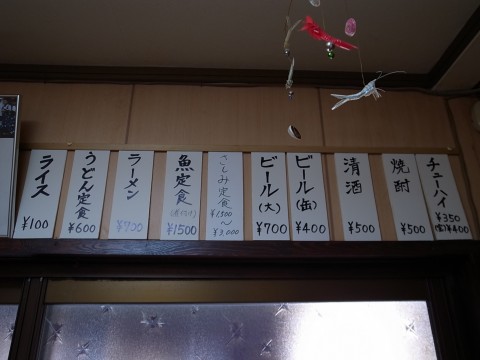 ライス
¥100
うどん定食
¥600
ラーメン
¥700
魚定食
(煮付け)
¥1500
さしみ定食
¥1500
～
¥3000
ビール
(大)
¥700
ビール
(缶)
¥400
清酒
¥500
焼酎
¥500
チューハイ
¥350
¥400